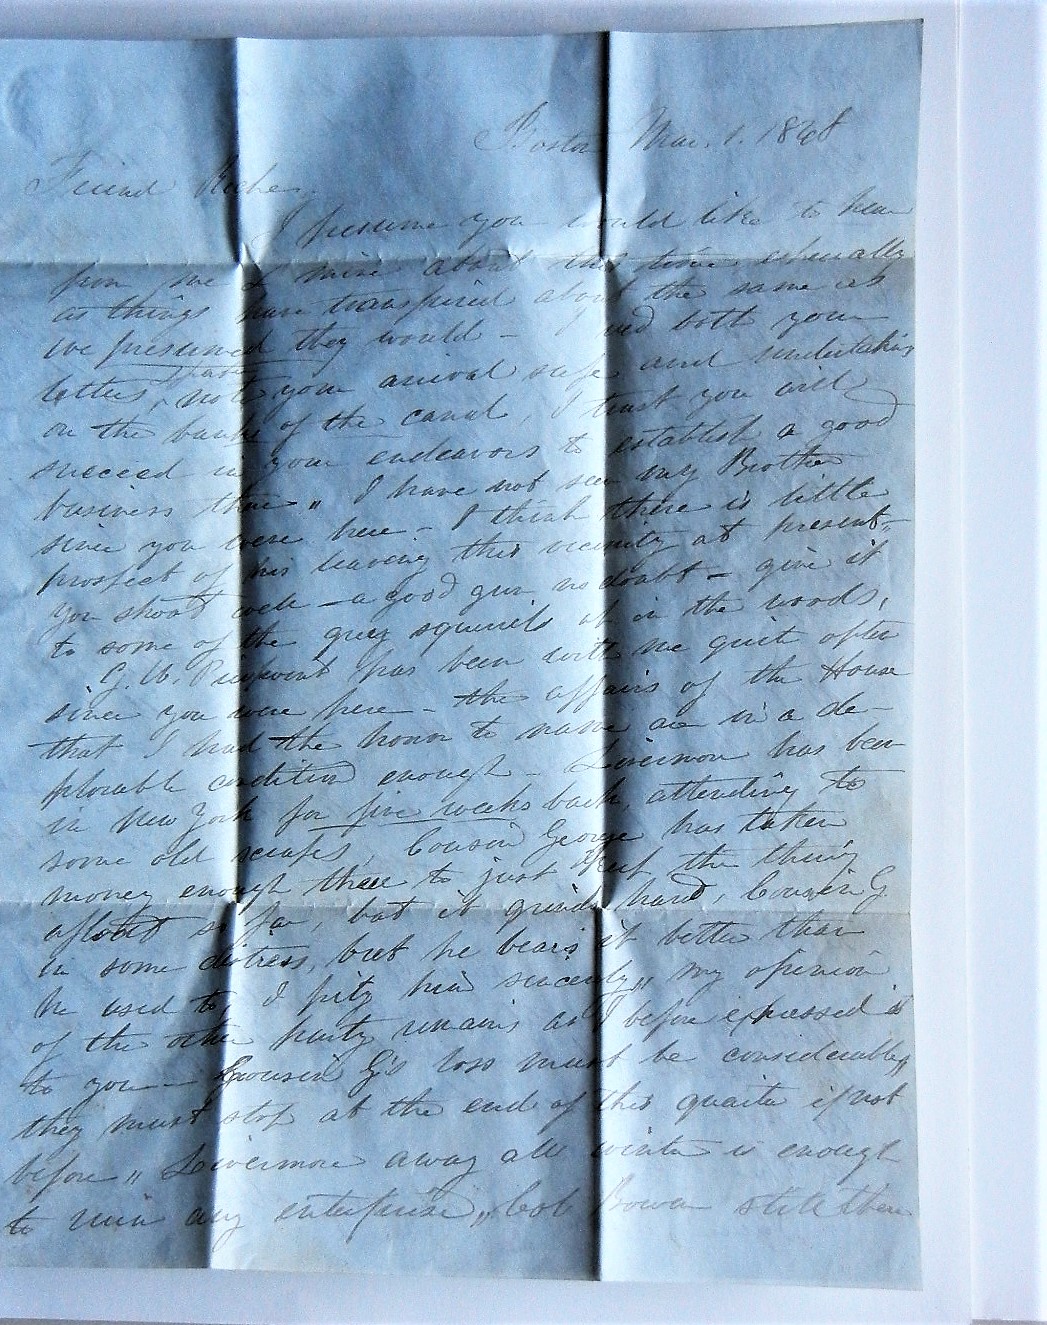 Boston Mar. 1. 1848
Friend
I presume you would like to hear
from me & mine about this time, especially
as things have transpired about the same as
we presumed they would - I red both your
letters, note your arrival safe and undertaking
on the banks of the canal, I trust you will
succeed in your endeavors to establish a good
business there " I have not seen my Brother
since you were here - I think there is little
prospect of his leaving this vicinity at present -
you shoot well - a good gun no doubt - give it
to some of the grey squirrils up in the woods.
G. W. has been with me quite often
since you were here - the affairs of the House
that I had the honor to name are in a de-
plorable condition enough - Livermore has been
in New York for five weeks back, attending to
some old scrapes, Cousin George has taken
money enough there to just keep the thing
afloat so far, but it grinds hard, Cousin G.
in some distress, but he bears it better than
he used to I pity him sincerely " my opinion
of the other party remains as I before expressed it
to you - Cousin G's loss must be considerable "
they must stop at the end of this quarter if not
before " Livermore away all winter is enough
to ruin any enterprise " Bowen still there